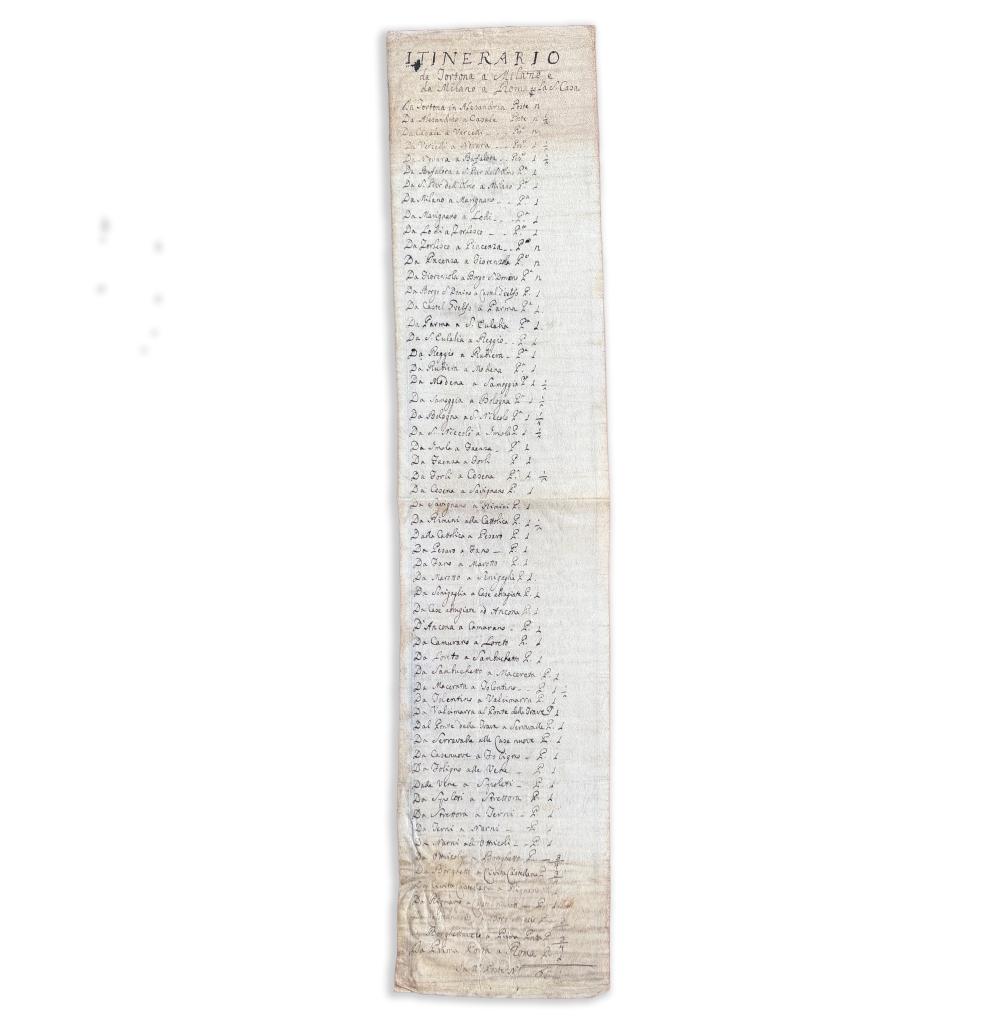 ITINERARIO
da Tortona a Milano e
da Milano a Roma La S. Casa
Da Tortona in Alessandria Poste n
Da Alessandria a Casale Poste n 1/2
Da Casale a Vercelli P.e n
Da Vercelli a Novara P.e 1 1/2
Da Novara a Bufalora P.e 1 1/2
Da Bufalora a S. Pier dell'Olmo P.a 1
Da S. Pier dell'Olmo a Milano P.a 1
Da Milano a Marignano P.a 1
Da Marignano a Lodi P.a 1
Da Lodi a Zorlesco P.a 1
Da Zorlesco a Piacenza P.e n
Da Piacenza a Fiorenzola P.e n
Da Fiorenzola a Borgo S. Donino P.e n
Da Borgo S. Donino a Castel Guelfo P. 1
Da Castel Guelfo a Parma P.a 1
Da Parma a S. Eulalia P.a 1
Da S. Eulalia a Reggio P. 1
Da Reggio a Rubiera P.a 1
Da Rubiera a Modena P.a 1
Da Modena a Samoggia P.a 1 1/2
Da Samoggia a Bologna P.a 1 1/2
Da Bologna a S. Niccolò P.a 1 1/2
Da S. Niccolò a Imola P. 1 1/2
Da Imola a Faenza P.a 1
Da Faenza a Forlì P. 1
Da Forlì a Cesena P. 1 1/2
Da Cesena a Savignano P. 1
Da Savignano a Rimini P. 1
Da Rimini alla Cattolica P. 1 1/2
Dalla Cattolica a Pesaro P. 1
Da Pesaro a Fano P. 1
Da Fano a Marotto P. 1
Da Marotto a Sinigaglia P. 1
Da Sinigaglia a Case abrugiate P. 1
Da Case abrugiate ad Ancona P. 1
D'Ancona a Camurano P. 1
Da Camurano a Loreto P. 1
Da Loreto a Sambuchetto P. 1
Da Sambuchetto a Macerata P. 1
Da Macerata a Tolentino P. 1 1/2
Da Tolentino a Valcimarra P. 1
Da Valcimarra al Ponte della Trave P. 1
Dal Ponte della Trave a Serravalle P. 1
Da Serravalle alle Case nuove P. 1
Da Casenuove a Foligno P. 1
Da Foligno alle Vene P. 1
Dalle Vene a Spoleti P. 1
Da Spoleti a Strettora P. 1
Da Strettora a Terni P. 1
Da Terni a Narni P. 1
Da Narni ad Otricoli P. 1
Da Otricoli a Borghetto P. 3/4
Da Borghetto a Civita Castellana P. 3/4
Da Civita Castellana a Rignano P.
Da Rignano a P. 1
a Borghettaccio P. 3/4
Borghettaccio a Prima Porta P. 3/4
Da Prima Porta a Roma P.
In tt. Poste N.